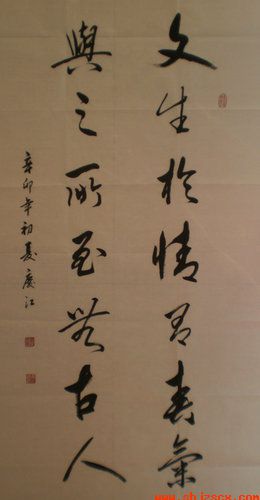 文生於情有春氣
興之所至無古人
辛卯年初夏慶江
www.shjzscx.com